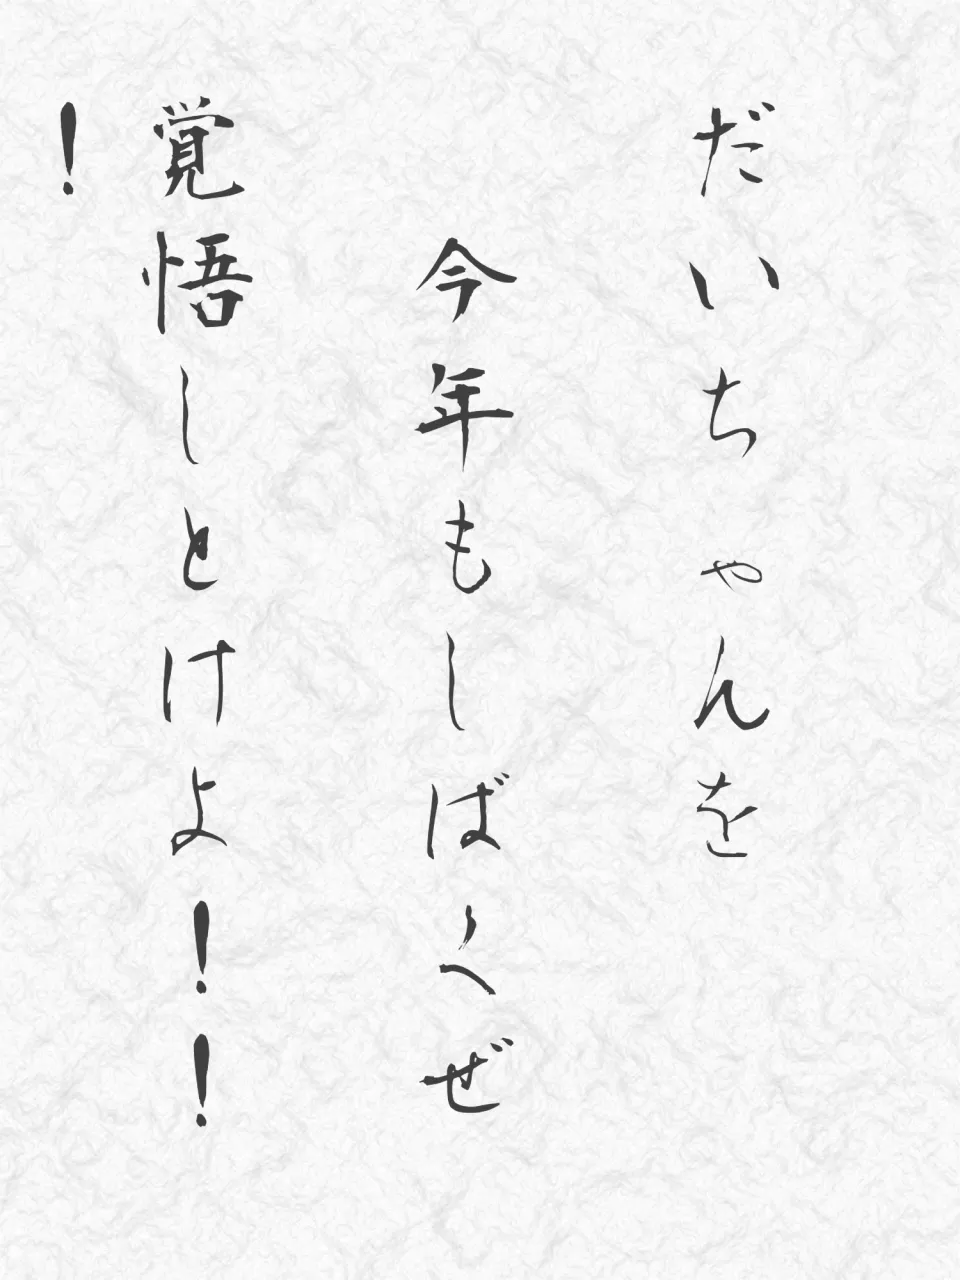 だいちゃんを
今年もしばくぜ
覚悟しとけよ！！
！